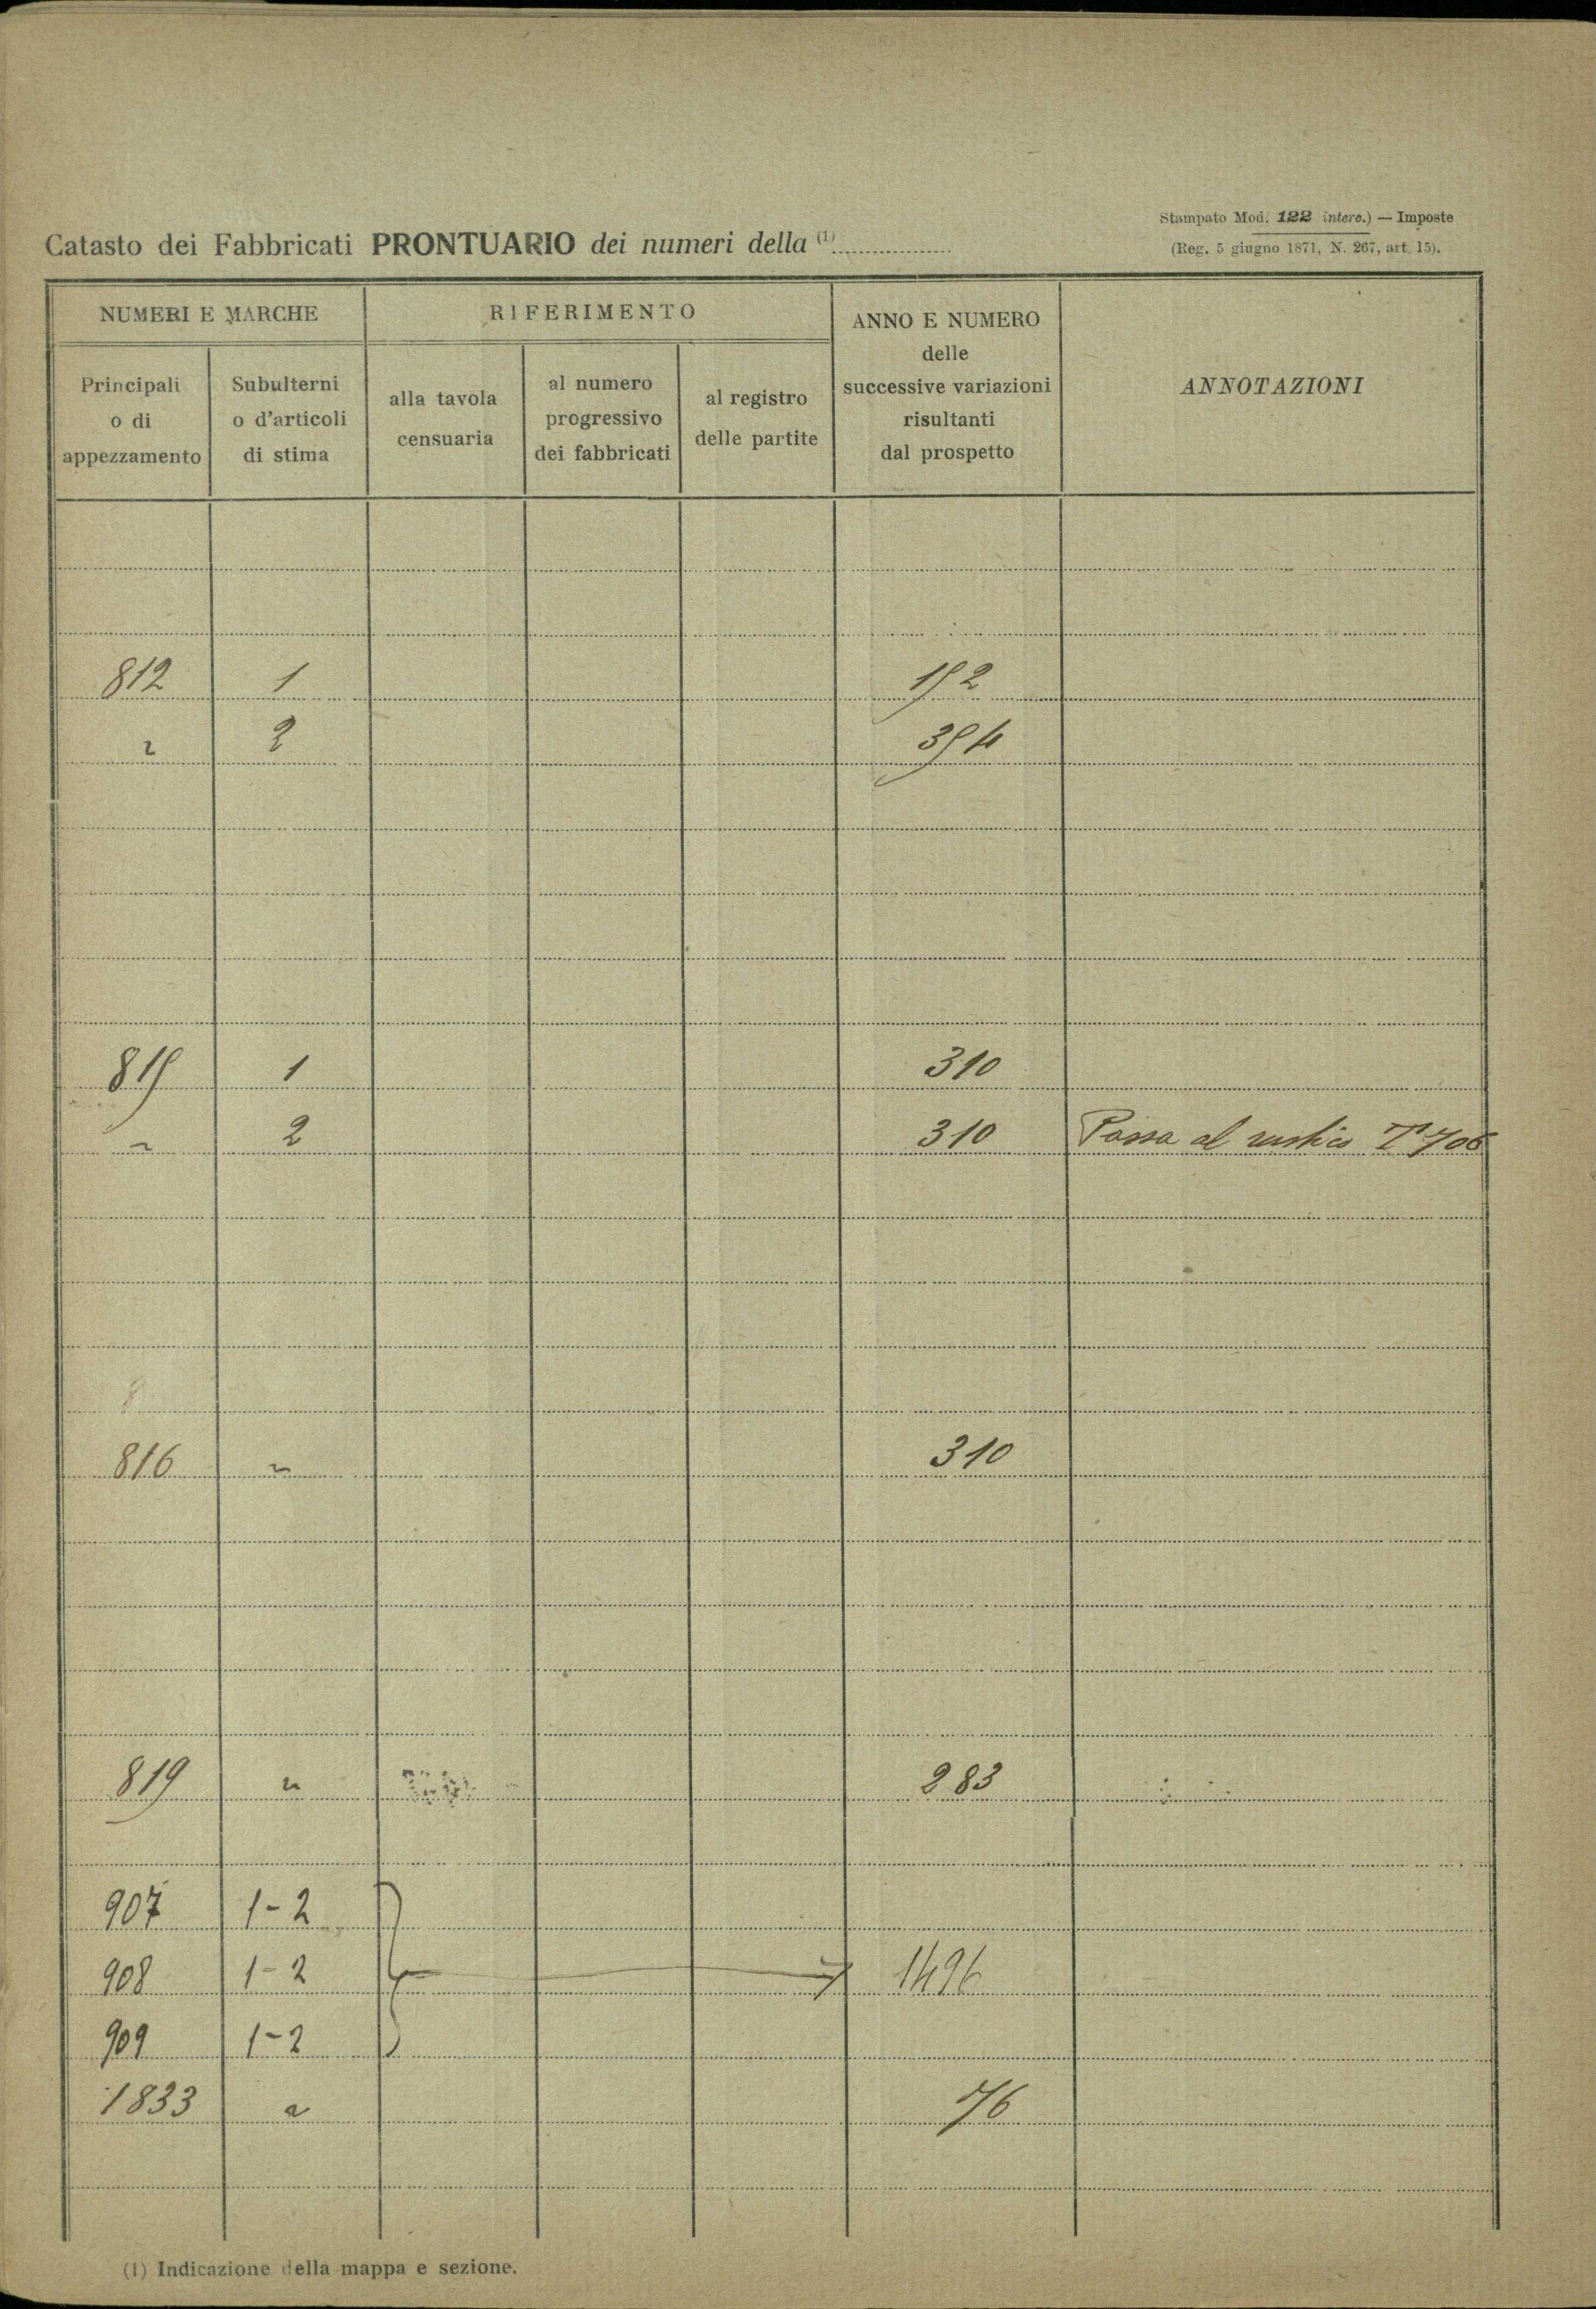 Stampato Mod. 122 interc.) — Imposte
(Reg. 5 giugno 1871, N. 267, art. 15).
Catasto dei Fabbricati PRONTUARIO dei numeri della (1)
NUMERI E MARCHE
RIFERIMENTO
ANNO E NUMERO
delle
successive variazioni
risultanti
dal prospetto
ANNOTAZIONI
Principali
o di
appezzamento
Subulterni
o d'articoli
di stima
alla tavola
censuaria
al numero
progressivo
dei fabbricati
al registro
delle partite
812 1 152
" 2 354
815 1 310
" 2 310 Passa al rustico T 706
8
816 " 310
819 " 283
907 1-2
908 1-2 1496
909 1-2
1833 " 76
(1) Indicazione della mappa e sezione.